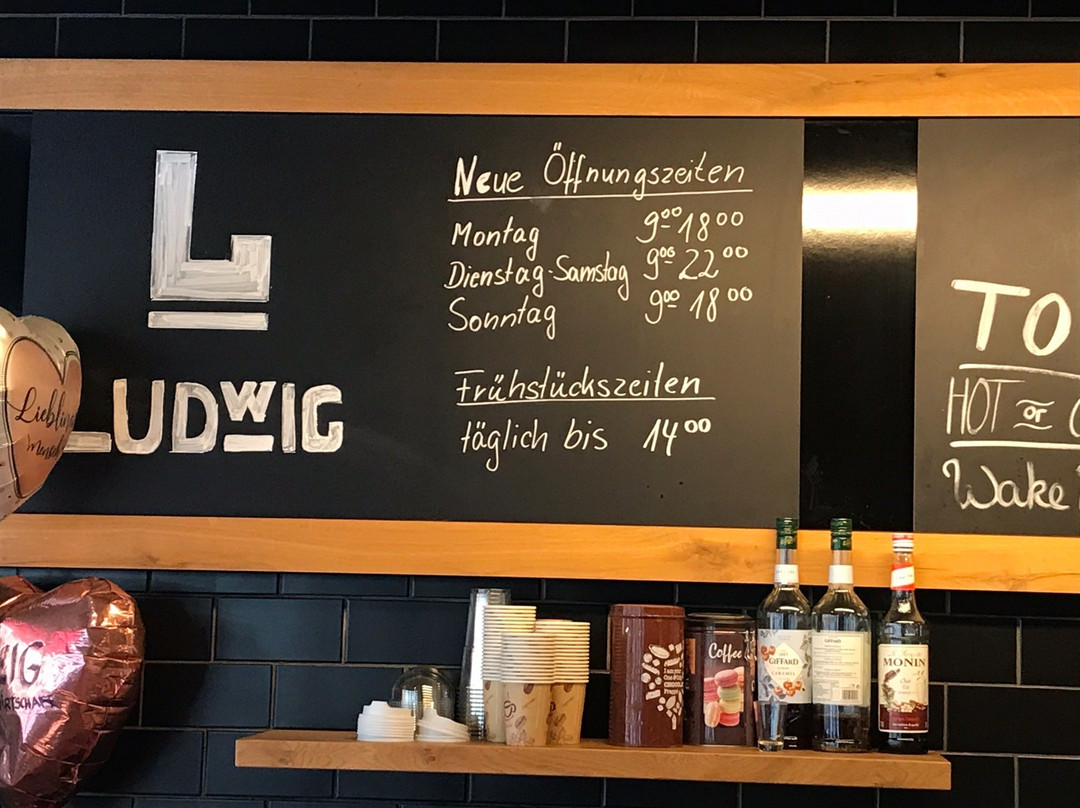 L
LUDWIG
Neue Öffnungszeiten
Montag 9⁰⁰-18⁰⁰
Dienstag-Samstag 9⁰⁰-22⁰⁰
Sonntag 9⁰⁰-18⁰⁰
Frühstückszeiten
täglich bis 14⁰⁰
TO
HOT or
Wake
Lieblin
Mensch
IG
Coffee
GIFFARD
CARAMEL
GIFFARD
MONIN
Chai